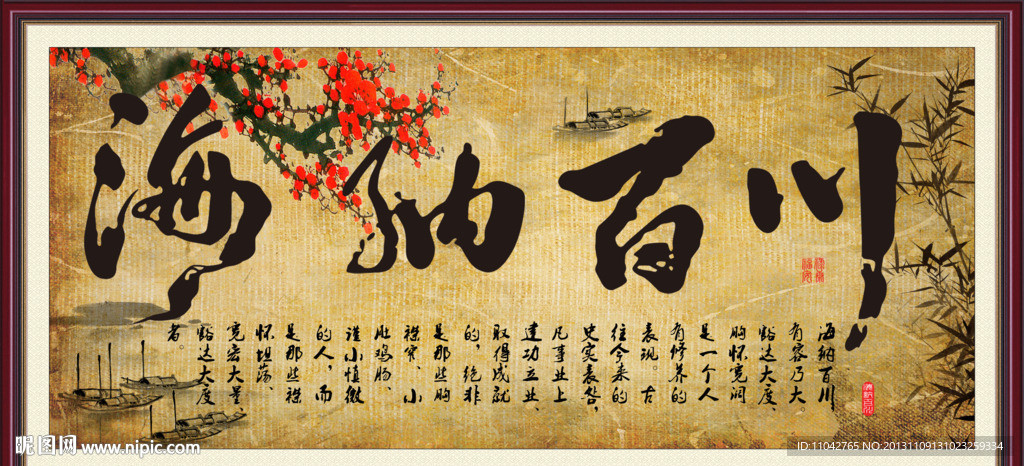 海纳百川
海纳百川
有容乃大。
豁达大度、
胸怀宽阔
是一个人
有修养的
表现。古
往今来的
史实表，
凡事业上
建功立业、
取得成就
的，绝非
是那些胸
襟窄、小
肚鸡肠、
谨小慎微
的人，而
是那些襟
怀坦荡、
宽宏大量
豁达大度
者。
昵图网 www.nipic.com
ID:11042765 NO:20131109131023259334